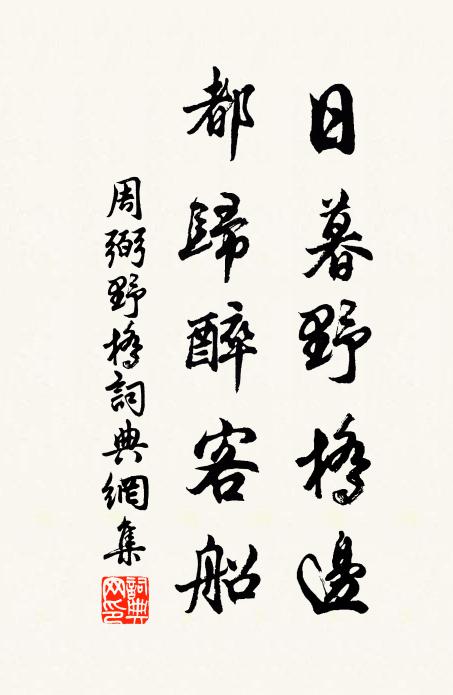 日暮野橋邊
都歸醉客船
周弼野橋詞典網集
詞典
网印